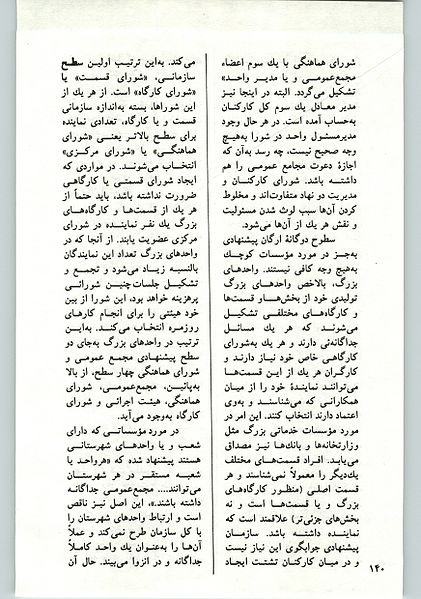 شورای هماهنگی با یك سوم اعضاء
مجمع‌عمومی و یا مدیـر واحـد»
تشکیل می‌گردد. البته در اینجا نیز
مدیر معادل یك سوم کل کارکنان
به‌حساب آمده است. در هر حال وجود
مدیرمسئول واحد در شورا به‌هیچ
وجه صحیح نیست، چه رسد به‌آن که
اجازهٔ دعوت مجامع عمومی را هم
داشتـه باشد. شورای کارکنـان و
مدیریت دو نهاد متفاوت‌اند و مخلوط
کردن آن‌ها سبب لوث شدن مسئولیت
و نقش هر یك از آن‌ها می‌شود.
سطوح دوگانهٔ ارگان پیشنهادی
به‌جـز در مورد مؤسسات کوچـك
به‌هیچ وجه کافی نیستند. واحدهای
بزرگ، بالاخص واحدهای بزرگ
تولیدی خود از بخش‌هـا، قسمت‌ها
و کارگاه‌های مختلفـی تشکیـل
می‌شونـد که هر یك مسائـل
جداگانه‌ئی دارند و هر یك به‌شورای
کارگاهی خاص خود نیاز دارنـد و
کارگران هر یك از این قسمت‌هـا
می‌توانند نمایندهٔ خود را از میـان
همکارانی که می‌شناسنـد و به‌وی
اعتماد دارند انتخاب کنند. این امر در
مورد مؤسسات خدماتی بزرگ مثل
وزارتخانه‌ها و بانك‌هـا نیـز مصداق
می‌یابد. افراد قسمت‌های مختلف
یك‌دیگر را معمولاً نمی‌شناسند و هر
قسمت اصلی (منظور کارگاه‌های
بزرگ و یا قسمت‌هـا است و نه
بخش‌های جزئی‌تر) علاقمند است که
نماینـده داشتـه باشد. سازمـان
پیشنهادی جوابگوی این نیاز نیست
و در میـان کارکنـان تشتت ایجـاد
می‌کند. به‌این ترتیب اولیـن سطح
سازمانی، «شورای قسمـت» یا
«شورای کارگاه» است. از هر یك از
این شوراها، بسته به‌اندازه سازمانی
قسمت و یا کارگاه، تعدادی نماینده
برای سطح بالاتر یعنـی «شورای
هماهنگـی» یا «شورای مرکـزی»
انتخـاب می‌شونـد. در مواردی که
ایجاد شورای قسمتـی یا کارگاهی
ضرورت نداشته باشد، باید حتمـاً از
هر یك از قسمت‌هـا و کارگاه‌های
بزرگ یك نفـر نماینده در شورای
مرکزی عضویت یابند. از آنجا که در
واحدهای بزرگ تعداد این نمایندگان
بالنسبه زیـاد می‌شود و تجمـع و
تشکیل جلسات چنیـن شورائـی
پرهزینه خواهد بود، این شورا از بین
خود هیئتی را برای انجام کارهای
روزمـره انتخـاب می‌کنـد. به‌ایـن
ترتیب در واحدهای بزرگ به‌جای دو
سطح پیشنهادی مجمع عمومـی و
شورای هماهنگی چهار سطح، از بالا
به‌پائیـن، مجمع‌عمومـی، شورای
هماهنگی، هیئت اجرائـی و شورای
کارگاه به‌وجود می‌آید.
در مورد مؤسساتـی که دارای
شعب و یا واحدهـای شهرستانـی
هستند پیشنهاد شده که «هرواحد یا
شعبـه مستقـر در هر شهرستـان
می‌توانند.... مجمع‌عمومی جداگانه
داشته باشند.»، این اصل نیـز ناقص
است و ارتباط واحدهای شهرستان را
با کل سازمان طرح نمی‌کند و عملاً
آن‌ها را به‌عنوان یك واحد کامـلاً
جداگانه و در انزوا می‌بینـد. حال آن
۱۴۰